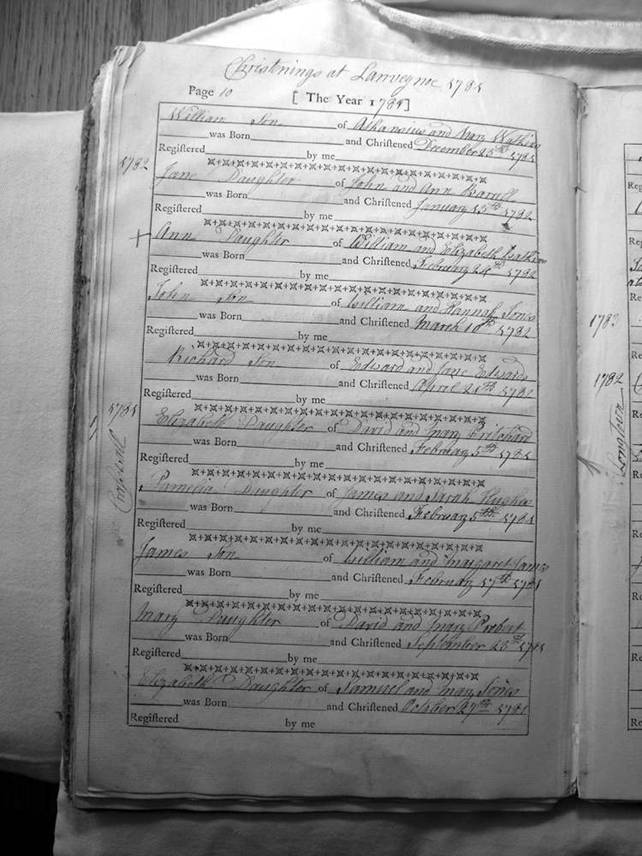 Christnings at Lanveynoe 1781
Page 10 [ The Year 1781 ]
William Son of Athanasius and Mary Watkins
was Born and Christened December 25th 1781
Registered by me
1782
Jane Daughter of John and Ann
was Born and Christened January 15th 1782
Registered by me
Ann Daughter of William and Elizabeth
was Born and Christened February 24th 1782
Registered by me
John Son of William and Hannah Jones
was Born and Christened March 10th 1782
Registered by me
Richard Son of Edward and Jane Edwards
was Born and Christened April 21th 1782
Registered by me
1781
Elizabeth Daughter of David and Mary Pritchard
was Born and Christened February 5th 1781
Registered by me
Pamelia Daughter of James and Sarah Hughes
was Born and Christened February 5th 1781
Registered by me
James Son of William and Margaret James
was Born and Christened February 17th 1781
Registered by me
Mary Daughter of David and Mary Probert
was Born and Christened September 26th 1781
Registered by me
Elizabeth Daughter of Samuel and Mary Jones
was Born and Christened October 27th 1781
Registered by me
1782
1782